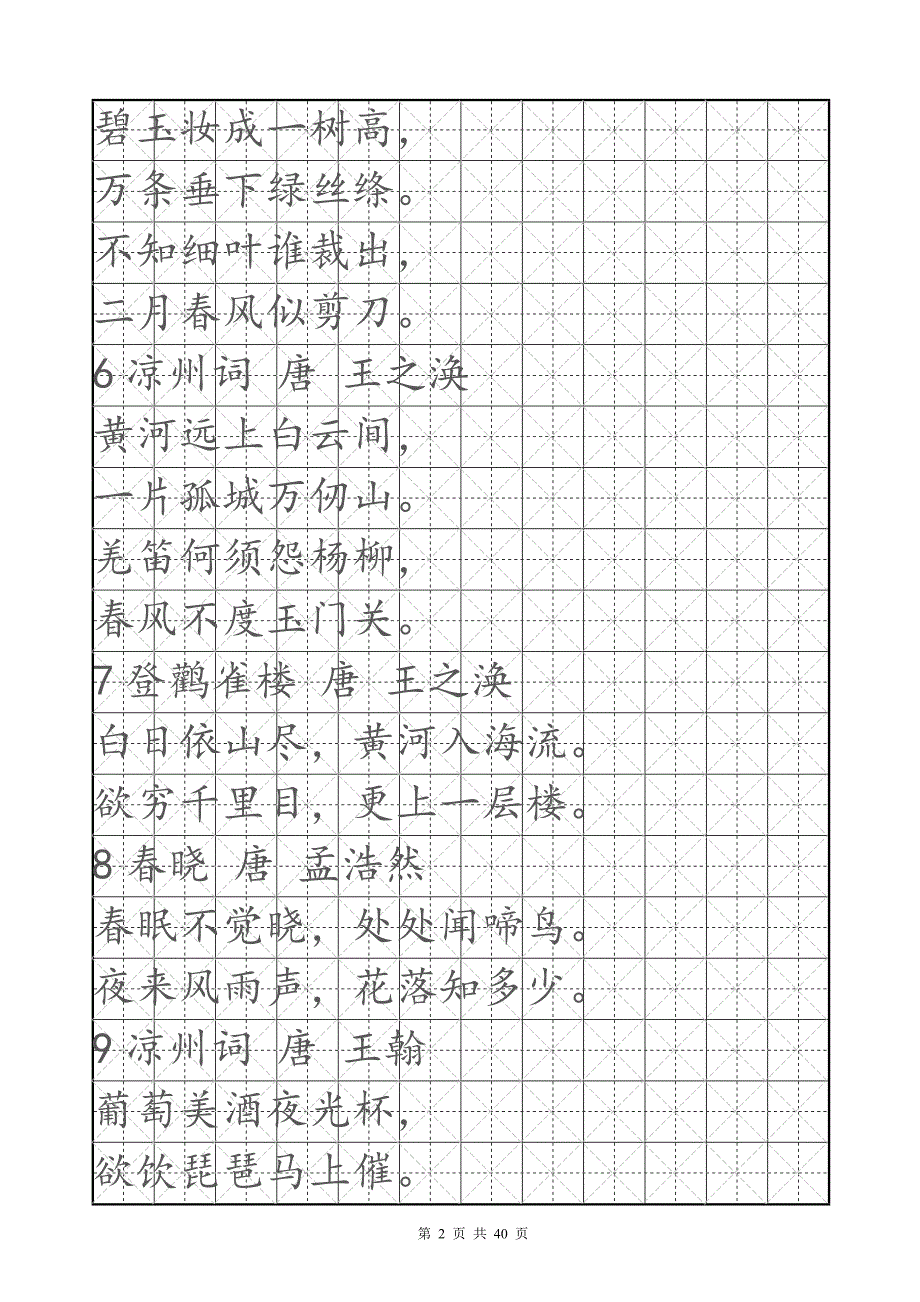 碧玉妆成一树高，
万条垂下绿丝绦。
不知细叶谁裁出，
二月春风似剪刀。
6 凉州词 唐 王之涣
黄河远上白云间，
一片孤城万仞山。
羌笛何须怨杨柳，
春风不度玉门关。
7 登鹳雀楼 唐 王之涣
白日依山尽，黄河入海流。
欲穷千里目，更上一层楼。
8 春晓 唐 孟浩然
春眠不觉晓，处处闻啼鸟。
夜来风雨声，花落知多少。
9 凉州词 唐 王翰
葡萄美酒夜光杯，
欲饮琵琶马上催。
第 2 页 共 40 页